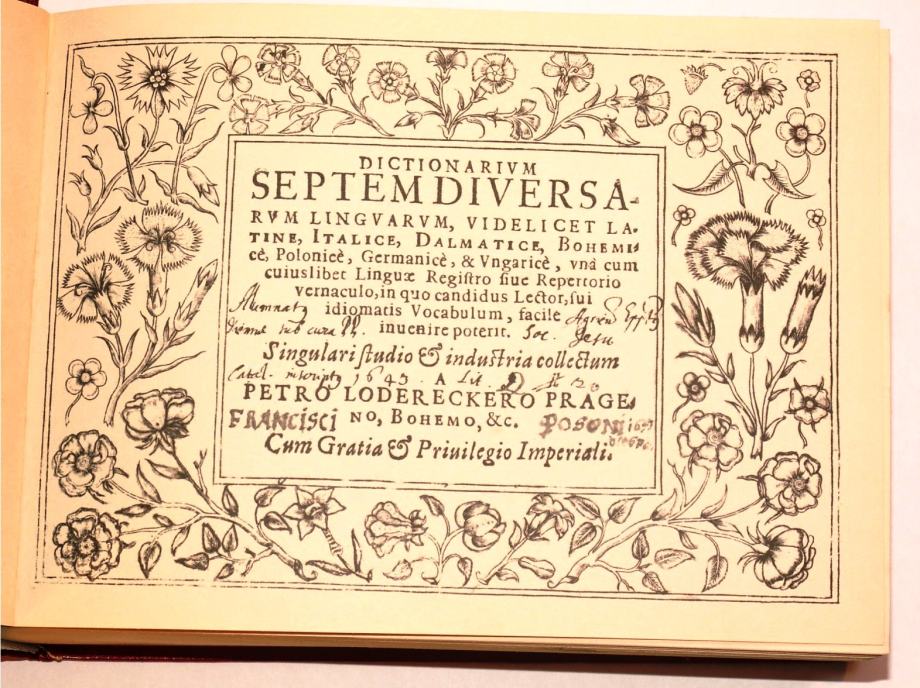 DICTIONARIVM
SEPTEM DIVERSA-
RVM LINGVARVM, VIDELICET LA-
TINE, ITALICE, DALMATICE, BOHEMI-
cè, Polonicè, Germanicè, & Vngaricè, vnà cum
cuiuslibet Linguæ Registro siue Repertorio
vernaculo, in quo candidus Lector, sui
idiomatis Vocabulum, facile
inuenire poterit. Soc. Jesu
Singulari studio & industria collectum
Catal. inscriptq 1643. A Lit.
PETRO LODERECKERO PRAGE,
FRANCISCI NO, BOHEMO, &c. POSONI
Cum Gratia & Priuilegio Imperiali.